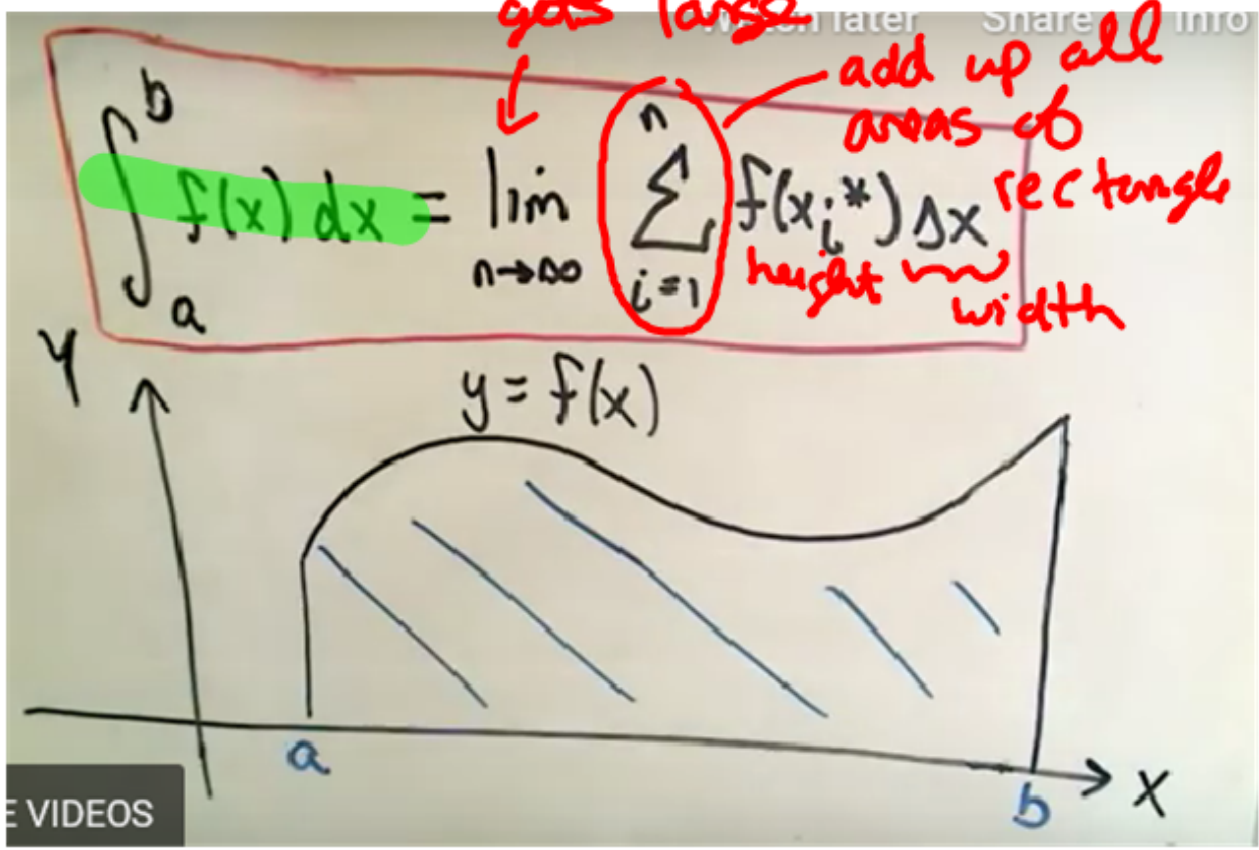 gets large
Watch later Share Info
add up all
areas of
rectangle
∫_a^b f(x) dx = lim_{n→∞} ∑_{i=1}^n f(x_i*) Δx
height
width
y = f(x)
Y
a
b
X
E VIDEOS